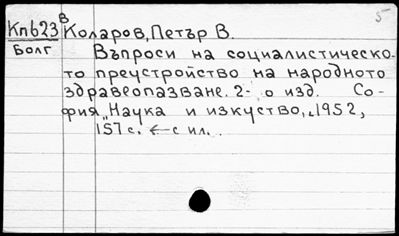 5
В
Кп623 Коларов, Петър В.
Болг Въпроси на социалистическо-
то преустройство на народното
здравеопазване. 2-о изд. Со-
фия, Наука и изкуство, 1952,
157 с. с ил.